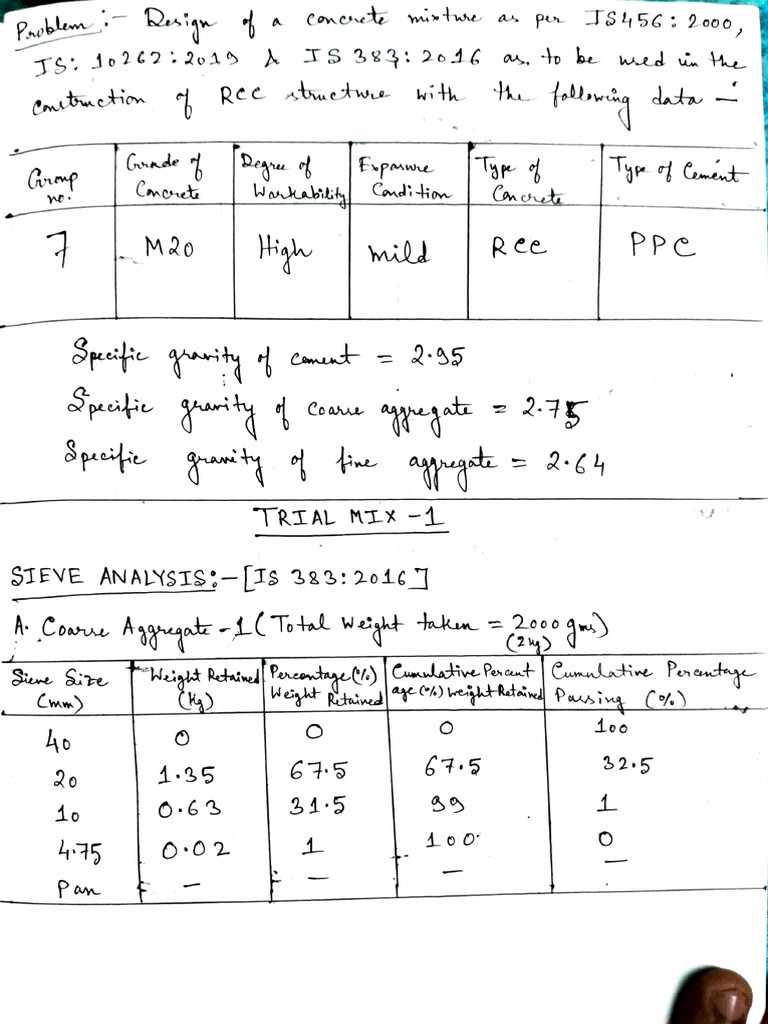 Problem :- Design of a concrete mixture as per IS456 : 2000,
IS: 10262:2019 & IS 383:2016 as. to be used in the
construction of RCC structure with the following data -
Group no. | Grade of Concrete | Degree of Workability | Exposure Condition | Type of Concrete | Type of Cement
7 | M20 | High | Mild | RCC | PPC
Specific gravity of cement = 2.95
Specific gravity of coarse aggregate = 2.75
Specific gravity of fine aggregate = 2.64
TRIAL MIX -1
SIEVE ANALYSIS:- [IS 383:2016]
A. Coarse Aggregate -1 (Total Weight taken = 2000 gms)
(2kg)
Sieve Size (mm) | Weight Retained (Kg) | Percentage (%) Weight Retained | Cumulative Percentage (%) Weight Retained | Cumulative Percentage Passing (%)
40 | 0 | 0 | 0 | 100
20 | 1.35 | 67.5 | 67.5 | 32.5
10 | 0.63 | 31.5 | 99 | 1
4.75 | 0.02 | 1 | 100 | 0
Pan | - | - | - | -